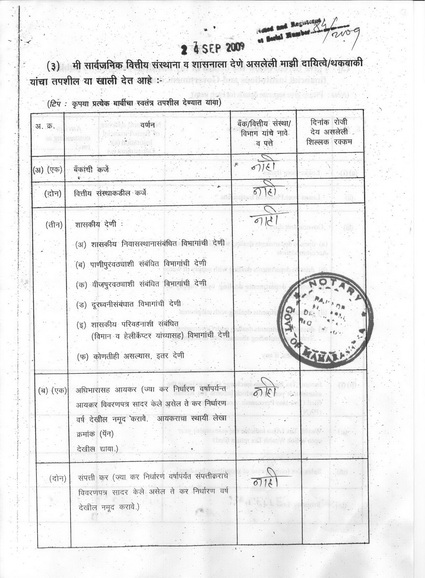 Noted and Registered
at Serial Number 84/2009
24 SEP 2009
(३) मी सार्वजनिक वित्तीय संस्थाना व शासनाला देणे असलेली माझी दायित्वे/थकबाकी
यांचा तपशील या खाली देत आहे :-
(टिप : कृपया प्रत्येक बाबींचा स्वतंत्र तपशील देण्यात यावा)
अ. क्र. वर्णन बँक/वित्तीय संस्था/ दिनांक रोजी
विभाग यांचे नावे देय असलेली
व पत्ते शिल्लक रक्कम
(अ) (एक) बँकांची कर्जे नाही
(दोन) वित्तीय संस्थाकडील कर्जे नाही
(तीन) शासकीय देणी : नाही
(अ) शासकीय निवासस्थानासंबंधित विभागांची देणी
(ब) पाणीपुरवठ्याशी संबंधित विभागांची देणी
(क) वीजपुरवठ्याशी संबंधित विभागांची देणी
(ड) दूरध्वनीसंबंधात विभागांची देणी
(इ) शासकीय परिवहनाशी संबंधित
(विमान व हेलीकॅप्टर यांच्यासह) विभागांची देणी
(फ) कोणतीही असल्यास, इतर देणी
NOTARY
GOVT. OF MAHARASHTRA
(ब) (एक) अधिभारासह आयकर (ज्या कर निर्धारण वर्षापर्यन्त नाही
आयकर विवरणपत्र सादर केले असेल ते कर निर्धारण
वर्ष देखील नमूद करावे. आयकराचा स्थायी लेखा
क्रमांक (पॅन)
देखील द्यावा.)
(दोन) संपत्ती कर (ज्या कर निर्धारण वर्षापर्यंत संपत्तीकराचे नाही
विवरणपत्र सादर केले असेल ते कर निर्धारण वर्ष
देखील नमूद करावे.)